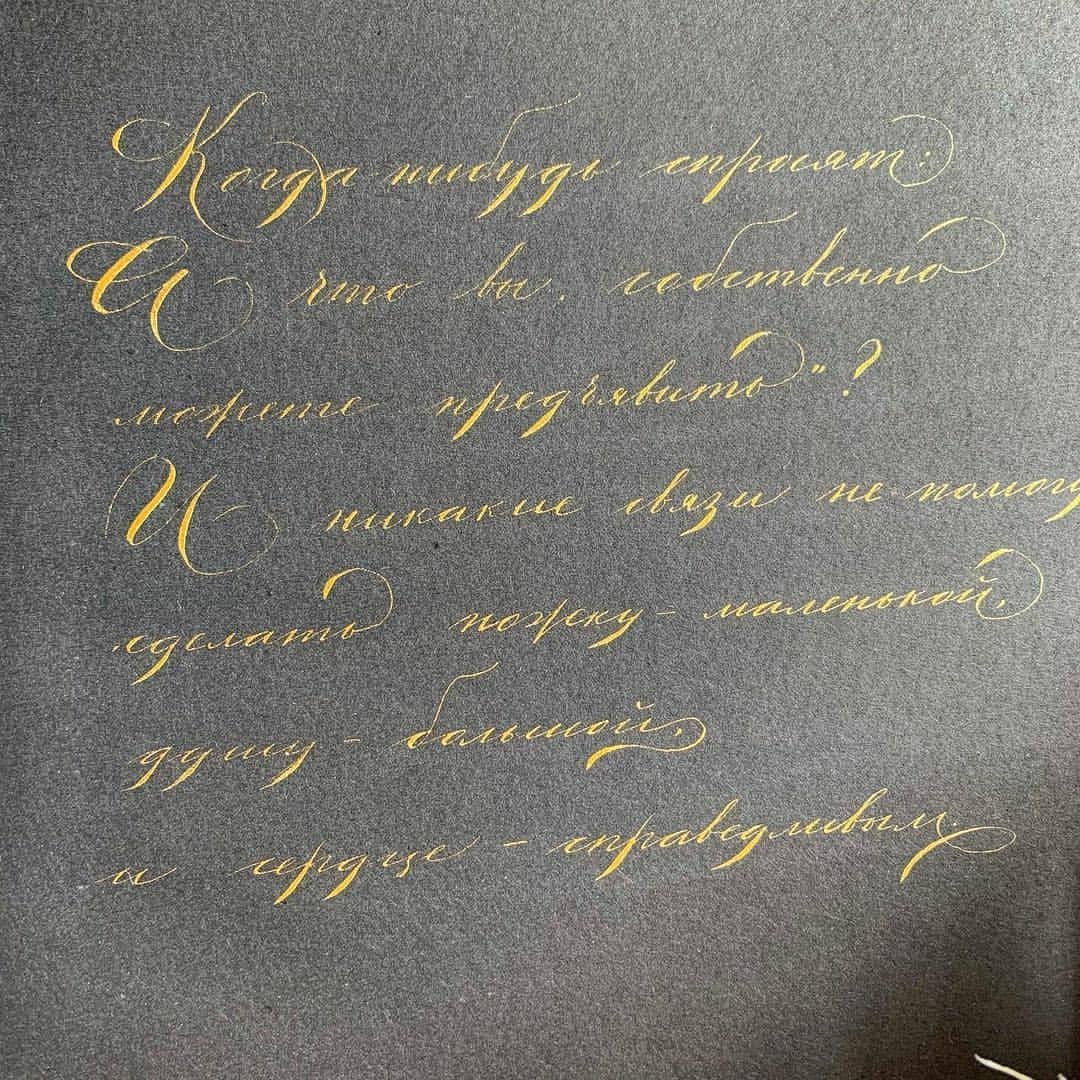 Когда нибудь спросят:
А что вы, собственно
можете предъявить"?
И никакие связи не помогу
сделать ножку - маленькой,
душу - большой,
и сердце - справедливым.